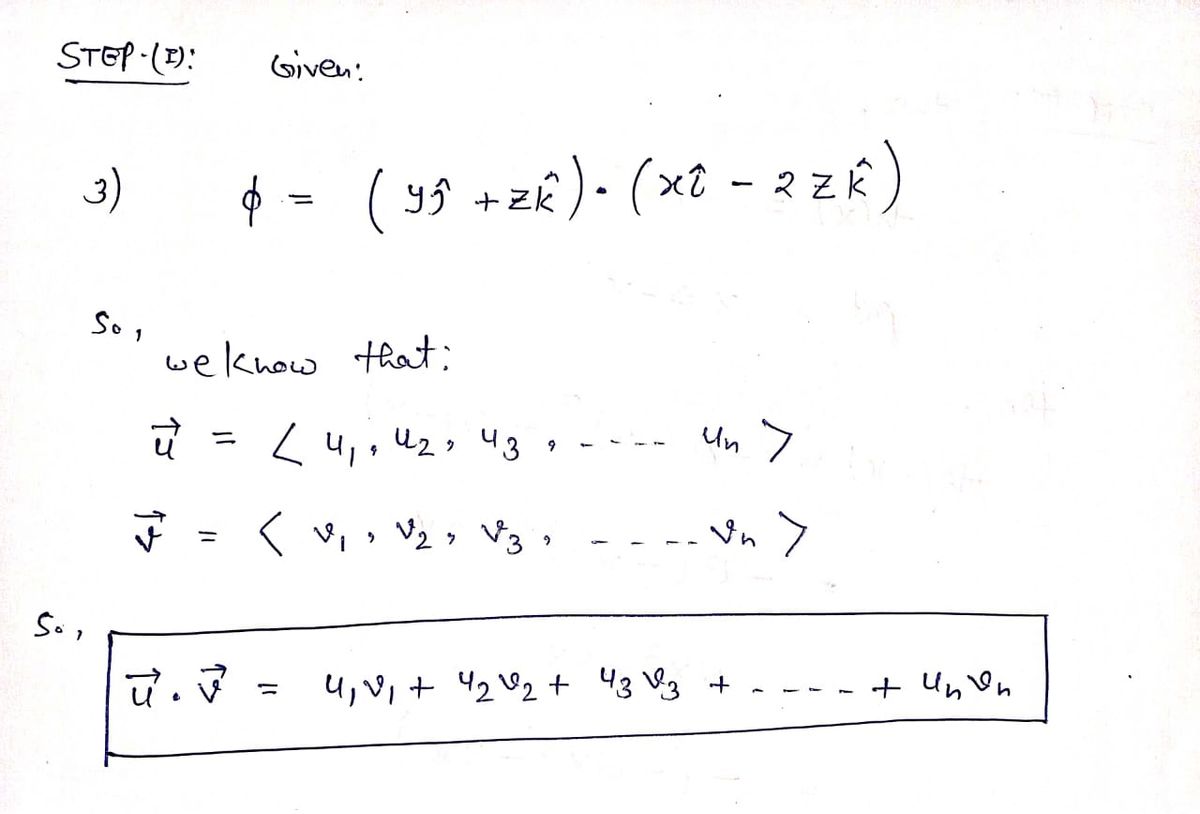 STEP-(I): Given:
3) ϕ = (yĵ + zk̂) · (xî - 2zk̂)
So,
we know that:
u⃗ = < u₁, u₂, u₃, ----- uₙ >
v⃗ = < v₁, v₂, v₃, ----- vₙ >
So,
u⃗ · v⃗ = u₁v₁ + u₂v₂ + u₃v₃ + ----- + uₙvₙ